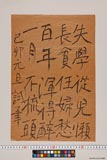 失學從兒懶
長貧任婦愁
百年渾得醉
一月不梳頭
己卯元旦試筆